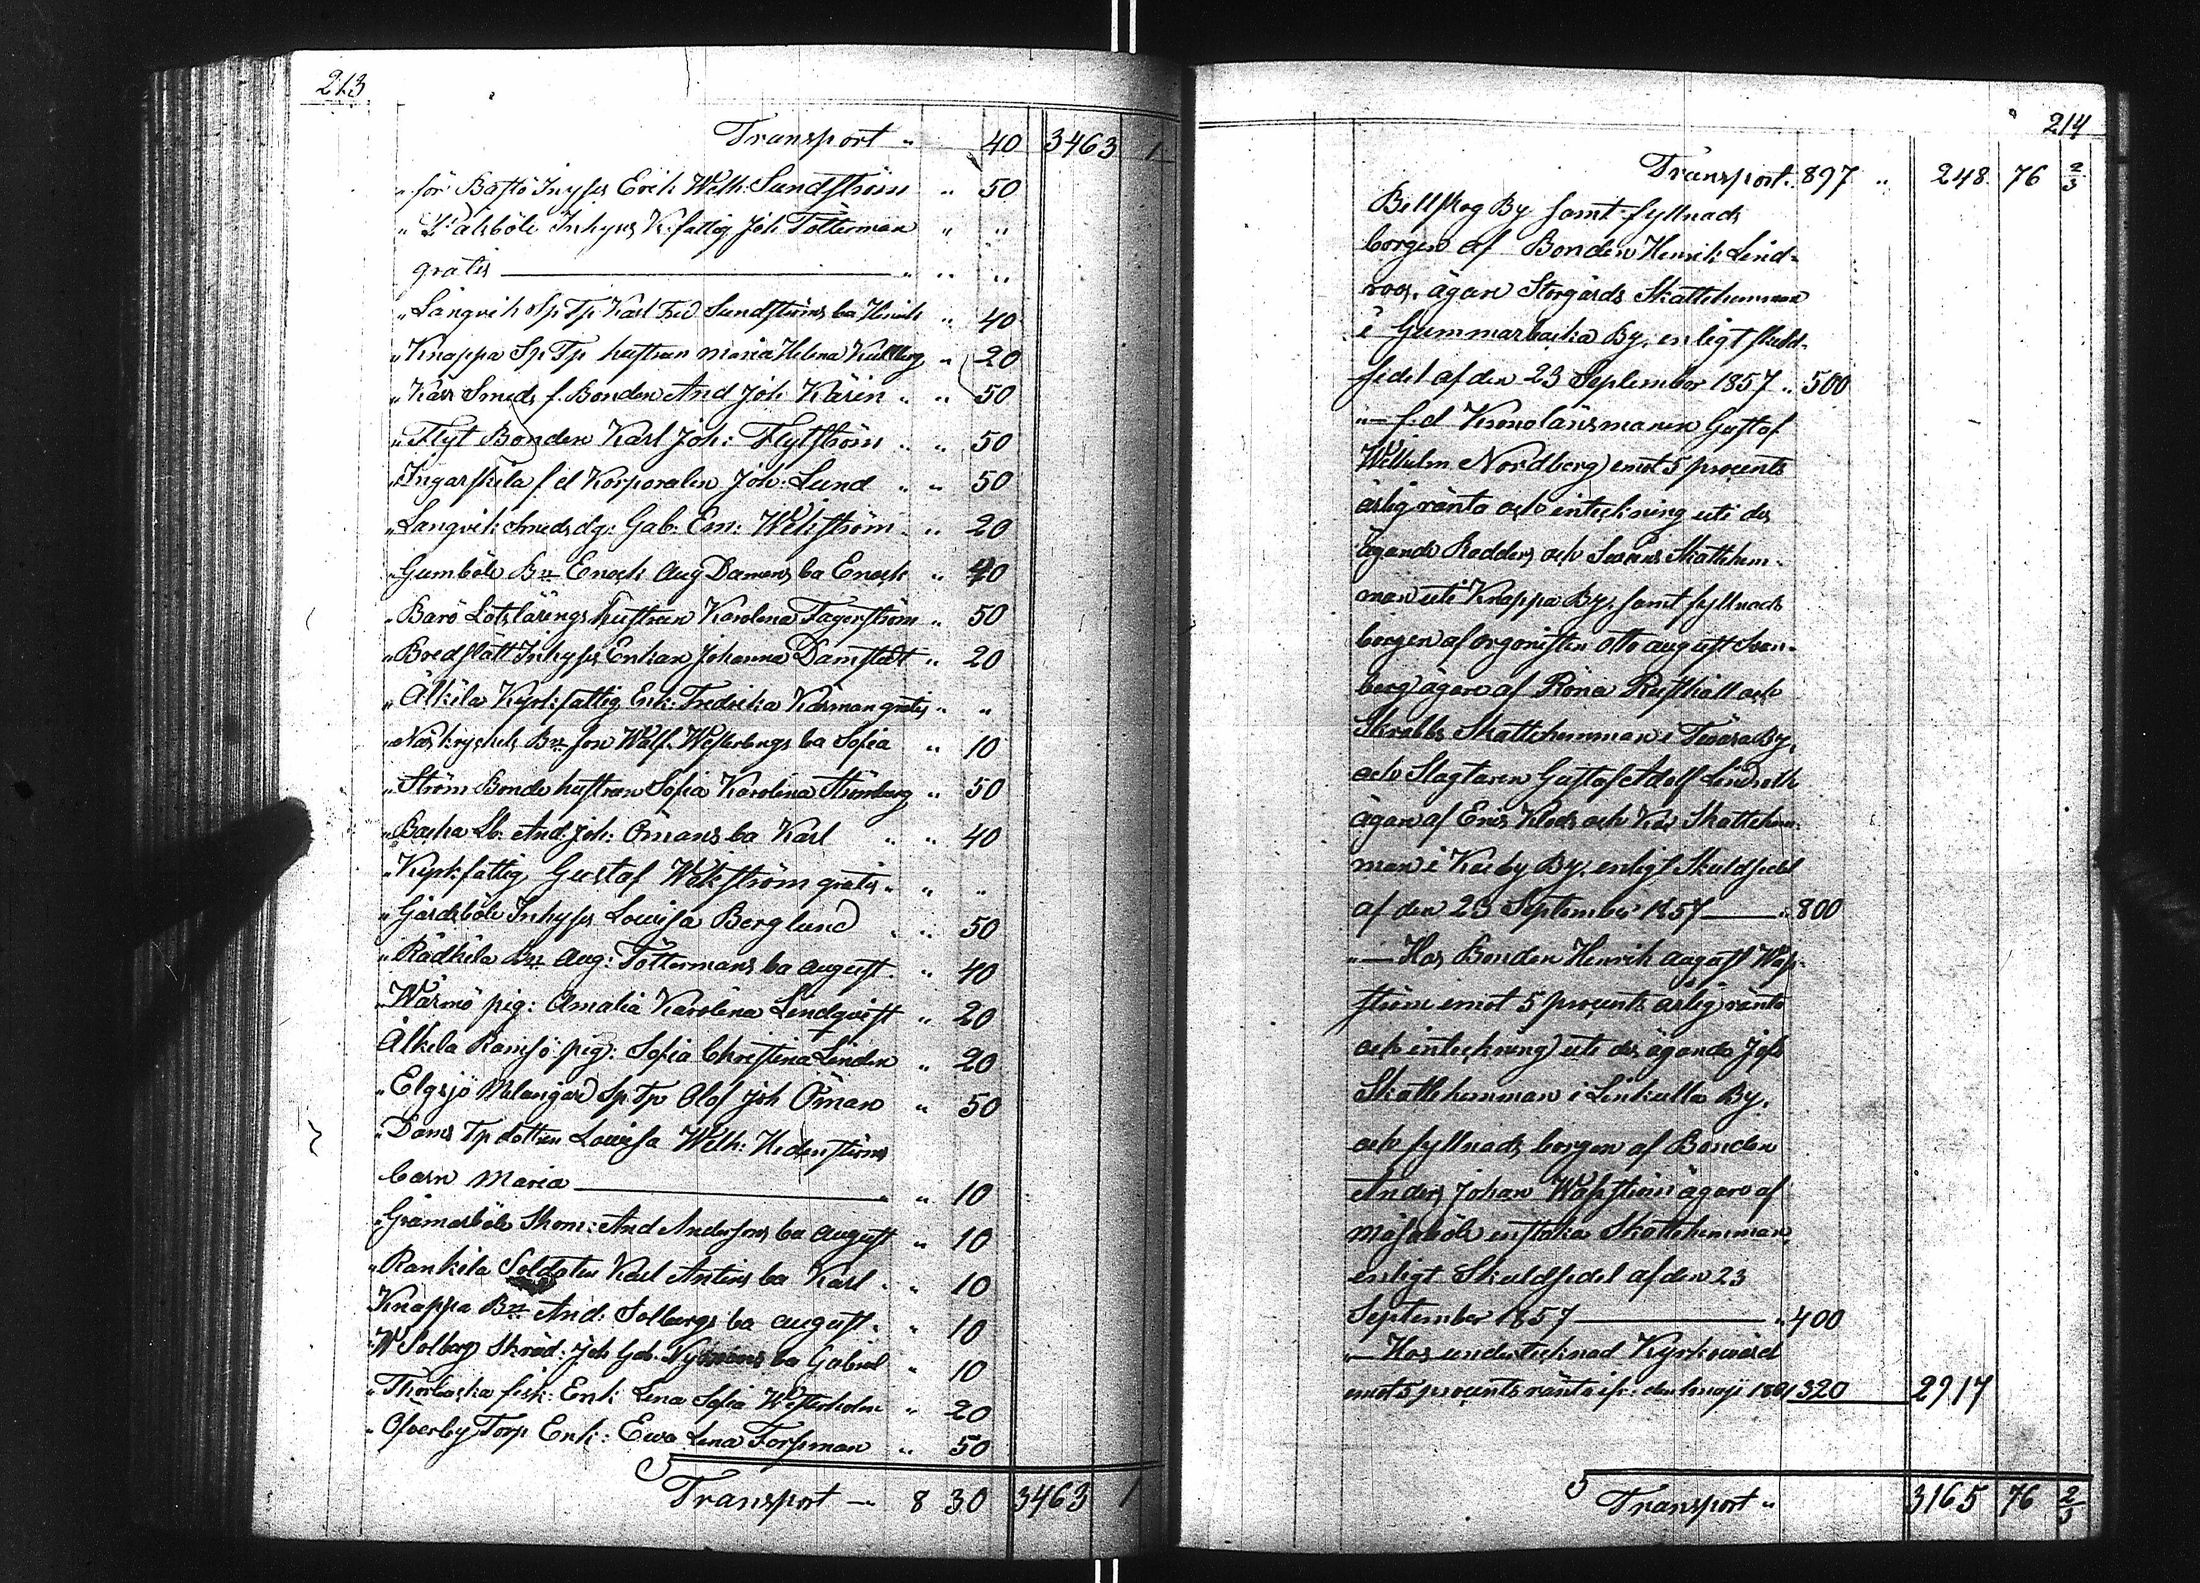 213
Transport " 40 3463 1
" för Bastö Inhyses Erik Welh: Sundström " 50
" Palsböle Inhyses K:fattig Joh Tötterman " "
gratis " " "
" Långvik Sp Tp Karl Fred Sundströms ba Henrik " 40
" Knappa Sp Tp hustrun Maria Helena Kullberg " 20
" Kärr Smeds f. Bonden And Joh: Kärin " " 50
" Flyt Bonden Karl Joh: Flytström " " 50
" Ingarskila f d Korporalen Joh: Lund " " 50
" Langvik Smeds dg: Gab: Em: Wekström " " 20
" Gumböle Bn Enock Aug Damens ba Enock " 40
" Barö Lotslärings hustrun Karolina Fagerström " 50
" Bredslätt Inhyses Enkan Johanna Damstedt " 20
" Älkila Kyrk:fattig Enk: Fredrika Kärman gratis " "
" Näs kryckels Bn Jon Walf. Westerbergs ba Sofia " 10
" Ström Bonde hustrun Sofia Karolina Strömberg " 50
" Backa Lb: And: Joh: Ömans ba Karl " " 40
" Kyrk:fattig Gustaf Wekström gratis " " "
" Gårdsböle Inhyses Lovisa Berglund " " 50
" Rådkila Bn Aug: Töttermans ba August " 40
" Wärmö pig: Amalia Karolina Lindqvist " 20
Älkila Ramsö pig: Sofia Christina Linden " 20
" Elgsjö Malangärd Sp:Tp Olof Joh Öman " 50
" Dams Tp dottren Lovisa Welh: Hedenströms
barn Maria " " 10
" Gråmarböle Skom: And Andersons ba August " 10
" Rankila Soldaten Karl Antins ba Karl " " 10
Knappa Bn And: Solbergs ba August " " 10
" W Solberg Skräd: Joh Gab. Nymans ba Gabriel " 10
" Thorbacka fisk: Enk Lena Sofia Westerholm " 20
" Öfverby Torp Enk: Ewa Lena Forsman " 50
Transport " 8 30 3463 1
214
Transport: 897 " 248 76 2/3
Bellskog By samt fyllnads
borgen af Bonden Henrik Lind-
roos, ägare Storgårds Skattehemman
i Gummarbacka By, enligt skuld-
sedel af den 23 September 1857 " 500
" — f:d Kronolänsmannen Gustaf
Wilhelm Nordberg emot 5 procents
årlig ränta och inteckning uti des
ägande Rodders och Svens Skattehem-
man uti Knappa By, samt fyllnads
borgen af orgonisten Otto August Svan-
berg ägare af Röna Rusthåll och
Skrabbs Skattehemman i Tvära By,
och Slagtaren Gustaf Adolf Lindroth
ägare af Ers Klos och Kås Skattehem-
man i Kårby By, enligt Skuldsedel
af den 23 September 1857 — " 800
" — Hos Bonden Henrik August Wass-
ström emot 5 procents årlig ränta
och inteckning uti des ägande Jofs
Skattehemman i Linkulla By,
och fyllnads borgen af Bonden
Anders Johan Wasström ägare af
Måsaböle enstaka Skattehemman,
enligt Skuldsedel af den 23
September 1857 — " 400
" — Hos undertecknad Kyrkovärd
emot 5 procents ränta ifr: den 1 maji 1861 320 2917
Transport " 3165 76 2/3